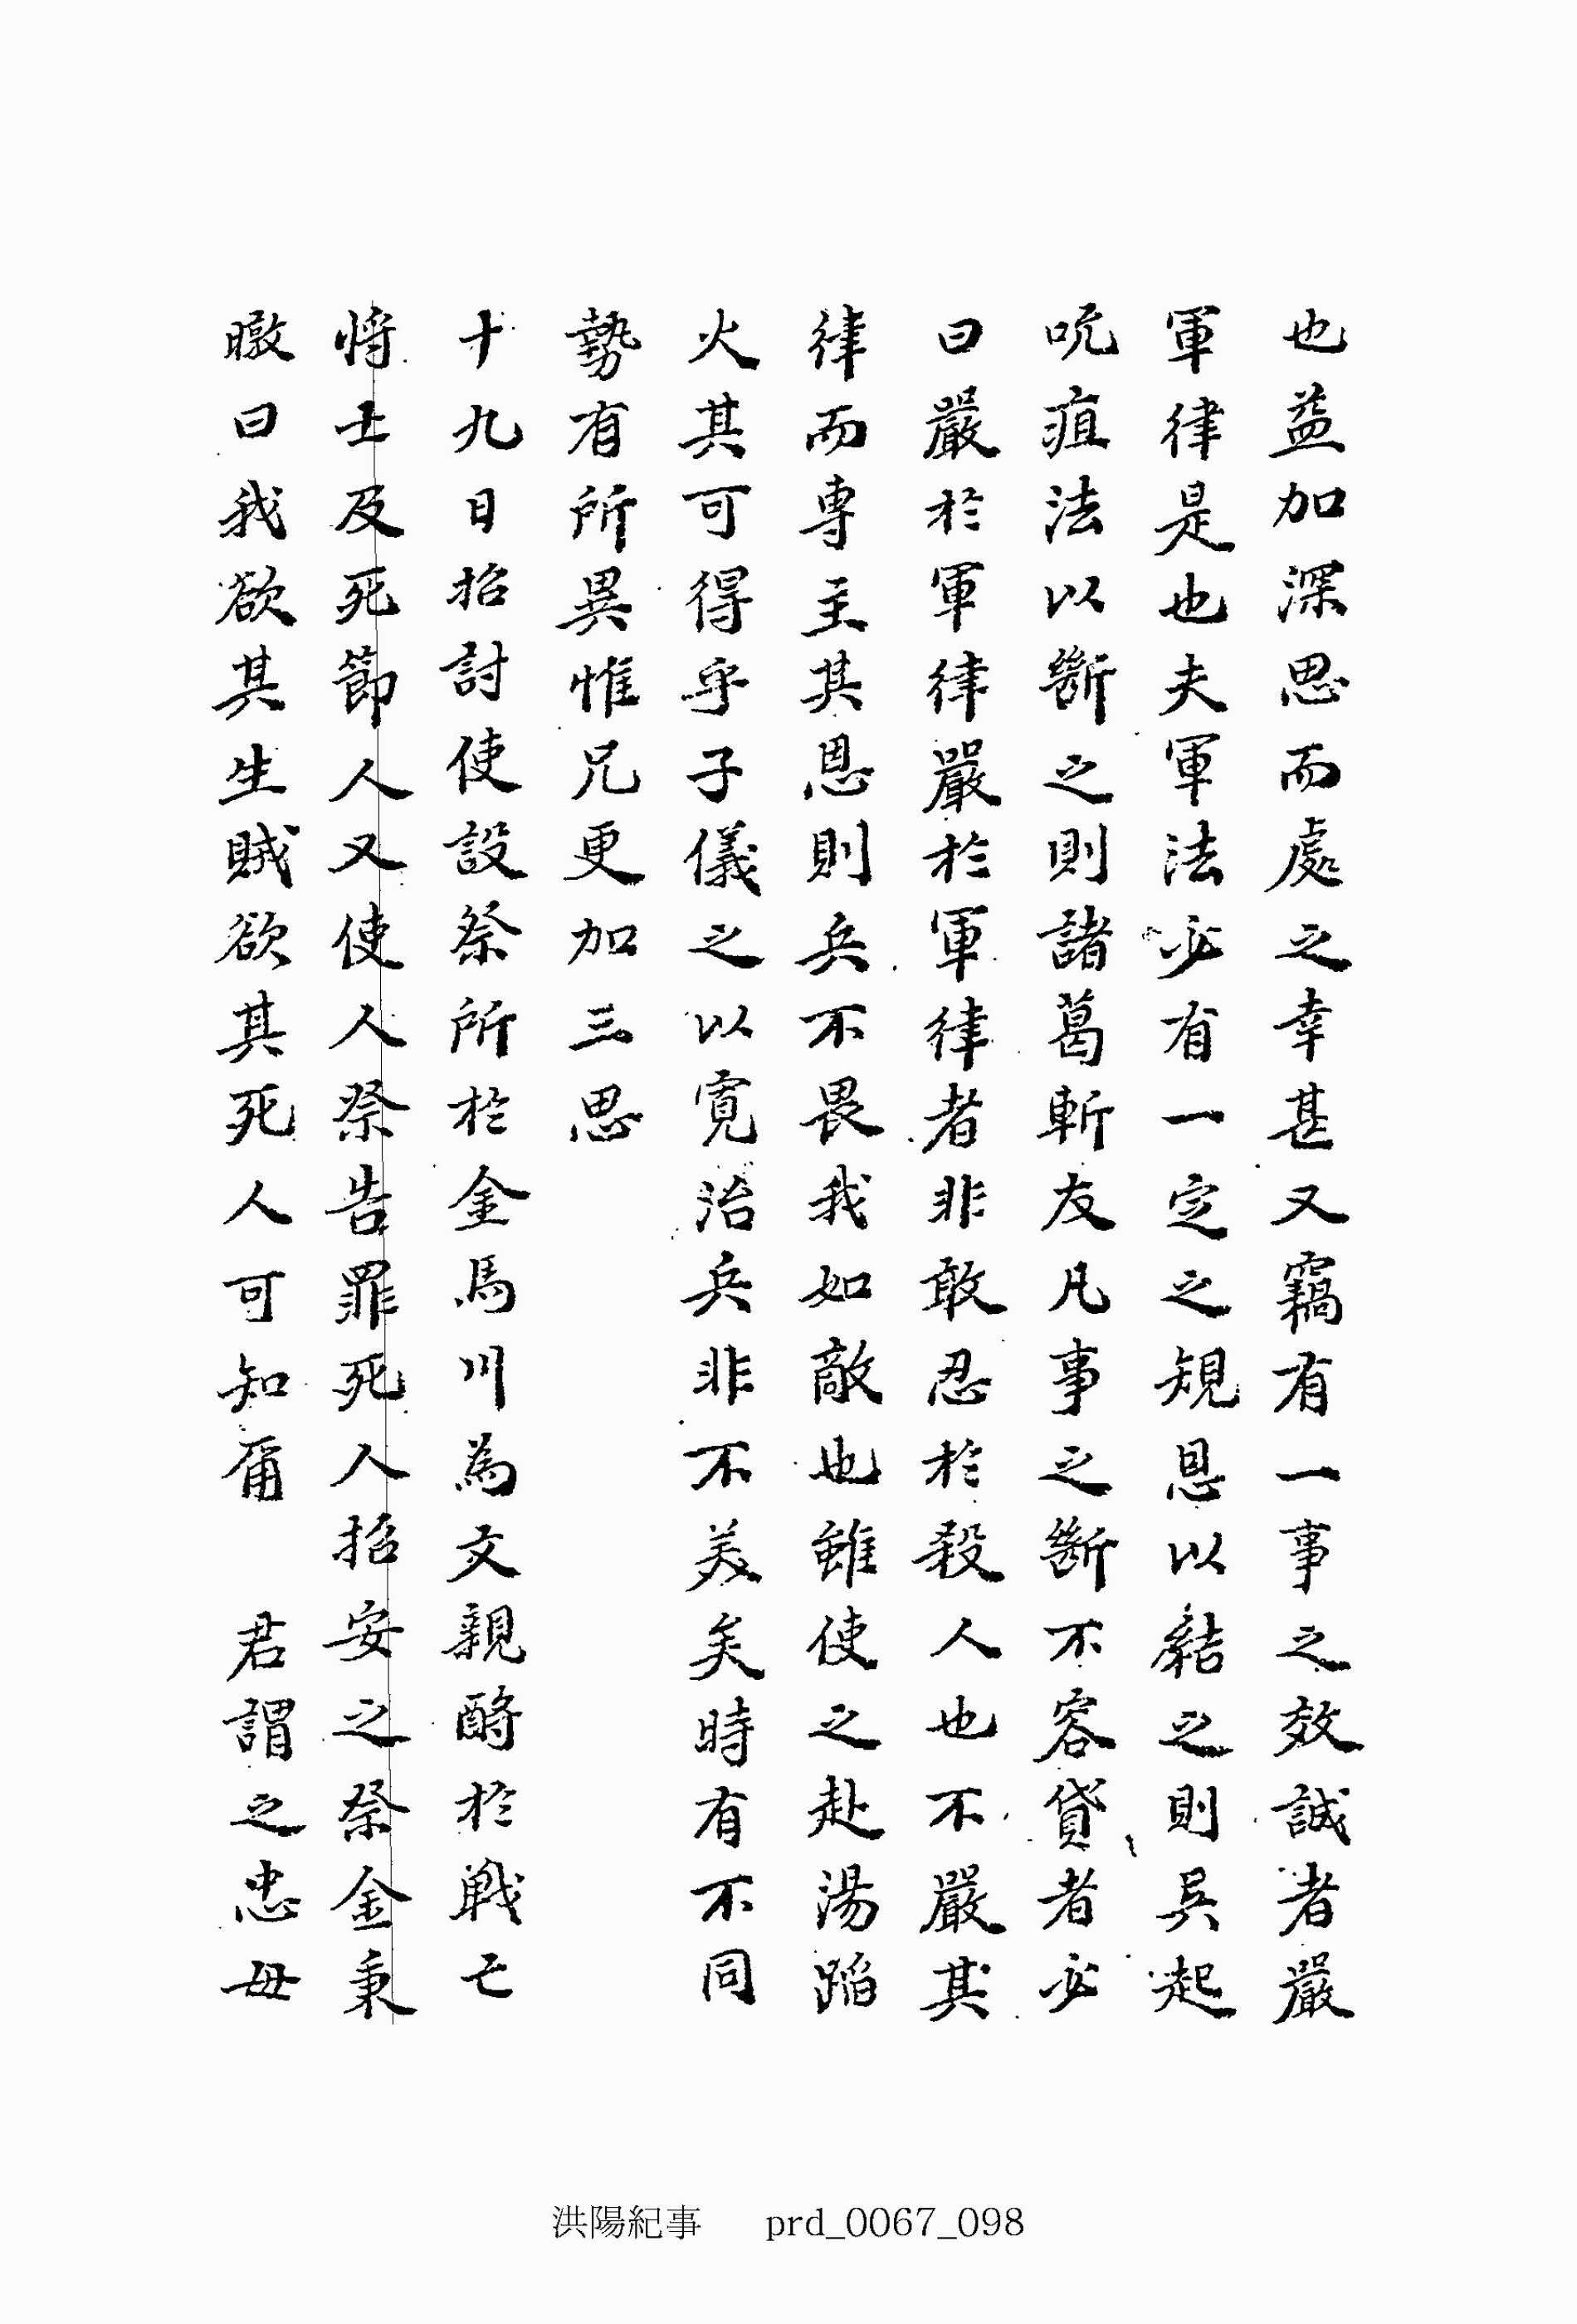 也益加深思而處之幸甚又竊有一事之效誠者嚴
軍律是也夫軍法必有一定之規恩以結之則吳起
吮疽法以斷之則諸葛斬友凡事之斷不容貸者必
曰嚴於軍律嚴於軍律者非敢忍於殺人也不嚴其
律而專主其恩則兵不畏我如敵也雖使之赴湯蹈
火其可得乎子儀之以寬治兵非不美矣時有不同
勢有所異惟兄更加三思
十九日招討使設祭所於金馬川為文親酹於戰亡
將士及死節人又使人祭告罪死人招安之祭金秉
暾曰我欲其生賊欲其死人可知甭 君謂之忠毋
洪陽紀事 prd_0067_098